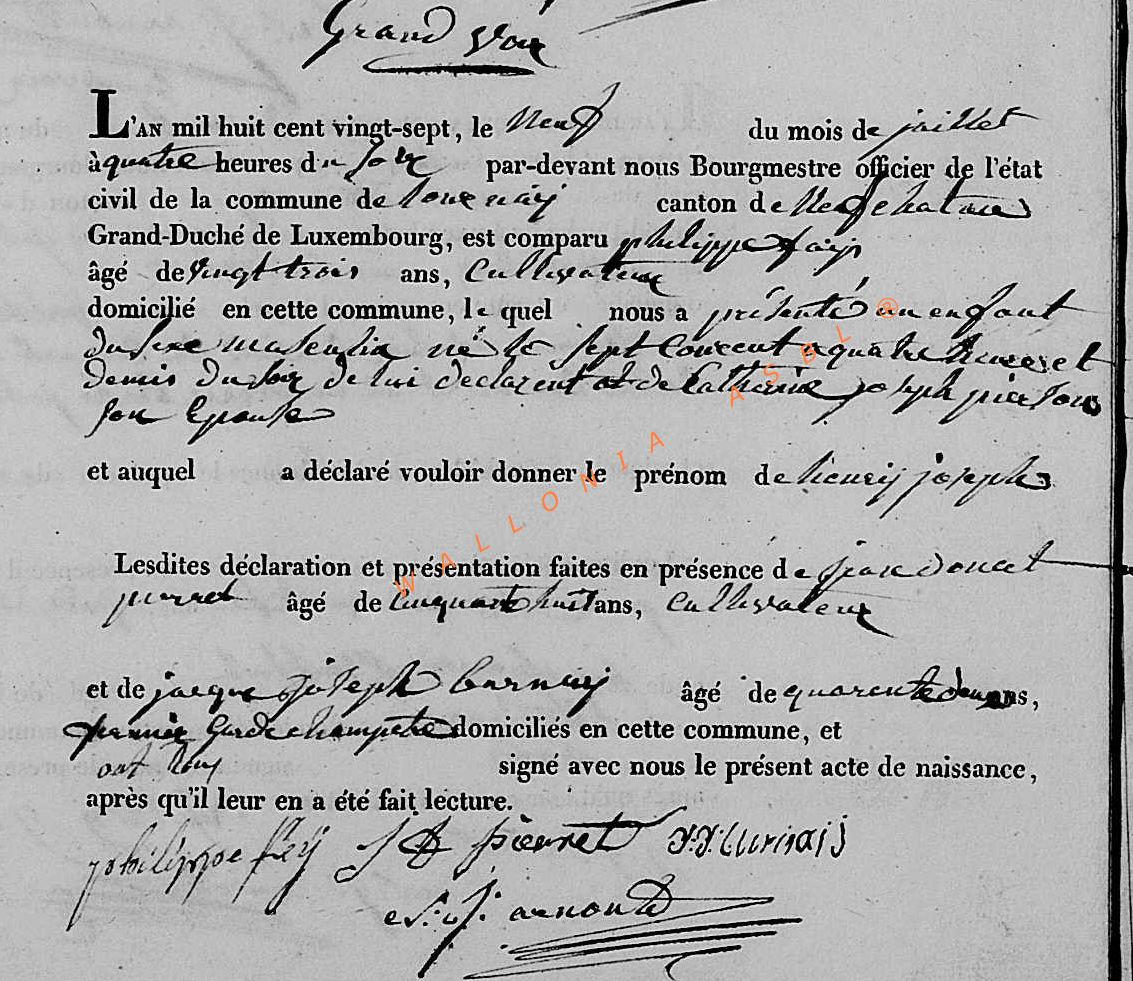 Grand Voir
L'AN mil huit cent vingt-sept, le Neuf du mois de juillet
à quatre heures du soir par-devant nous Bourgmestre officier de l'état
civil de la commune de tournay canton de Neufchateau
Grand-Duché de Luxembourg, est comparu philippe fays
âgé de vingt trois ans, Cultivateur
domicilié en cette commune, le quel nous a présenté un enfant
du sexe masculin né le sept Courent a quatre heures et
demis du soir de lui declarent et de Catherine joseph pierson
son Epouse
et auquel a déclaré vouloir donner le prénom de henry joseph
Lesdites déclaration et présentation faites en présence de jean donat
pierret âgé de Cinquante huit ans, Cultivateur
et de jacque joseph Carnay âgé de quarente deux ans,
garde champetre domiciliés en cette commune, et
ont tous signé avec nous le présent acte de naissance,
après qu'il leur en a été fait lecture.
philippe feÿ J D pierret J.J. Curnaij
arnould
WALLONIA ASBL ®